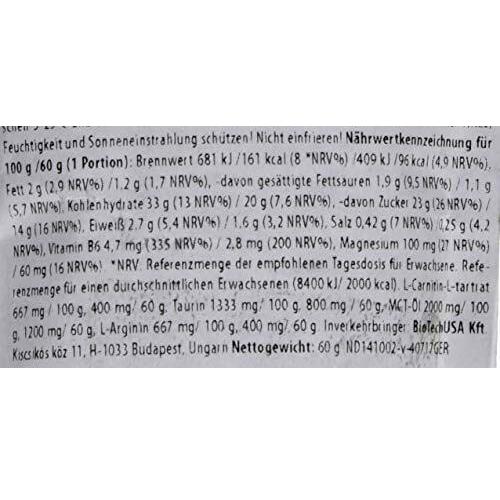 Feuchtigkeit und Sonneneinstrahlung schützen! Nicht einfrieren! Nährwertkennzeichnung für
100 g /60 g (1 Portion): Brennwert 681 kJ /161 kcal (8 *NRV%) /409 kJ /96 kcal (4,9 NRV%),
Fett 2 g (2,9 NRV%) /1,2 g (1,7 NRV%), -davon gesättigte Fettsäuren 1,9 g (9,5 NRV%) / 1,1 g
(5,7 NRV%), Kohlenhydrate 33 g (13 NRV%) / 20 g (7,6 NRV%), -davon Zucker 23 g (26 NRV%) /
14 g (16 NRV%), Eiweiß 2,7 g (5,4 NRV%) / 1,6 g (3,2 NRV%), Salz 0,42 g (7 NRV%) /0,25 g (4,2
NRV%), Vitamin B6 4,7 mg (335 NRV%) / 2,8 mg (200 NRV%), Magnesium 100 mg (27 NRV%)
/ 60 mg (16 NRV%). *NRV. Referenzmenge der empfohlenen Tagesdosis für Erwachsene. Refe-
renzmenge für einen durchschnittlichen Erwachsenen (8400 kJ/ 2000 kcal). L-Carnitin-L-tartrat
667 mg / 100 g, 400 mg/ 60 g. Taurin 1333 mg/ 100 g, 800 mg / 60 g, MCT-Öl 2000 mg/ 100
g, 1200 mg/ 60 g, L-Arginin 667 mg/ 100 g, 400 mg/ 60 g. Inverkehrbringer: BioTechUSA Kft.
Kiscsikós köz 11, H-1033 Budapest, Ungarn Nettogewicht: 60 g ND141002-v-40717GER